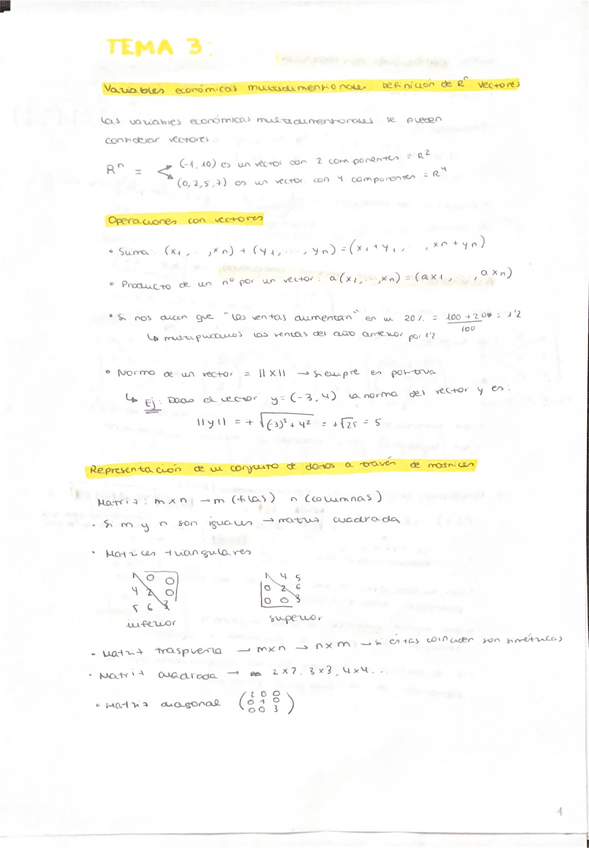 TEMA 3:
Variables económicas multidimensionales. Definición de Rⁿ. Vectores
Las variables económicas multidimensionales se pueden
considerar vectores.
Rⁿ = < (-1, 10) es un vector con 2 componentes = R²
(0, 2, 5, 7) es un vector con 4 componentes = R⁴
Operaciones con vectores
• Suma: (x₁, ..., xn) + (y₁, ..., yn) = (x₁ + y₁, ..., xn + yn)
• Producto de un nº por un vector: a(x₁, ..., xn) = (ax₁, ..., axn)
• Si nos dicen que "las ventas aumentan" en un 20% = (100 + 20)/100 = 1'2
↳ multiplicamos las ventas del año anterior por 1'2
• Norma de un vector = ||x|| → siempre es positiva
↳ Ej: Dado el vector y = (-3, 4) la norma del vector y es:
||y|| = + √(-3)² + 4² = +√25 = 5
Representación de un conjunto de datos a través de matrices
Matriz: m x n → m (filas) n (columnas)
• Si m y n son iguales → matriz cuadrada
• Matrices triangulares
1 0 0 1 4 5
4 2 0 0 2 6
5 6 3 0 0 3
inferior superior
• Matriz traspuesta → m x n → n x m → si éstas coinciden son simétricas
• Matriz cuadrada → 2x2, 3x3, 4x4...
• Matriz diagonal (2 0 0
0 1 0
0 0 3)
4